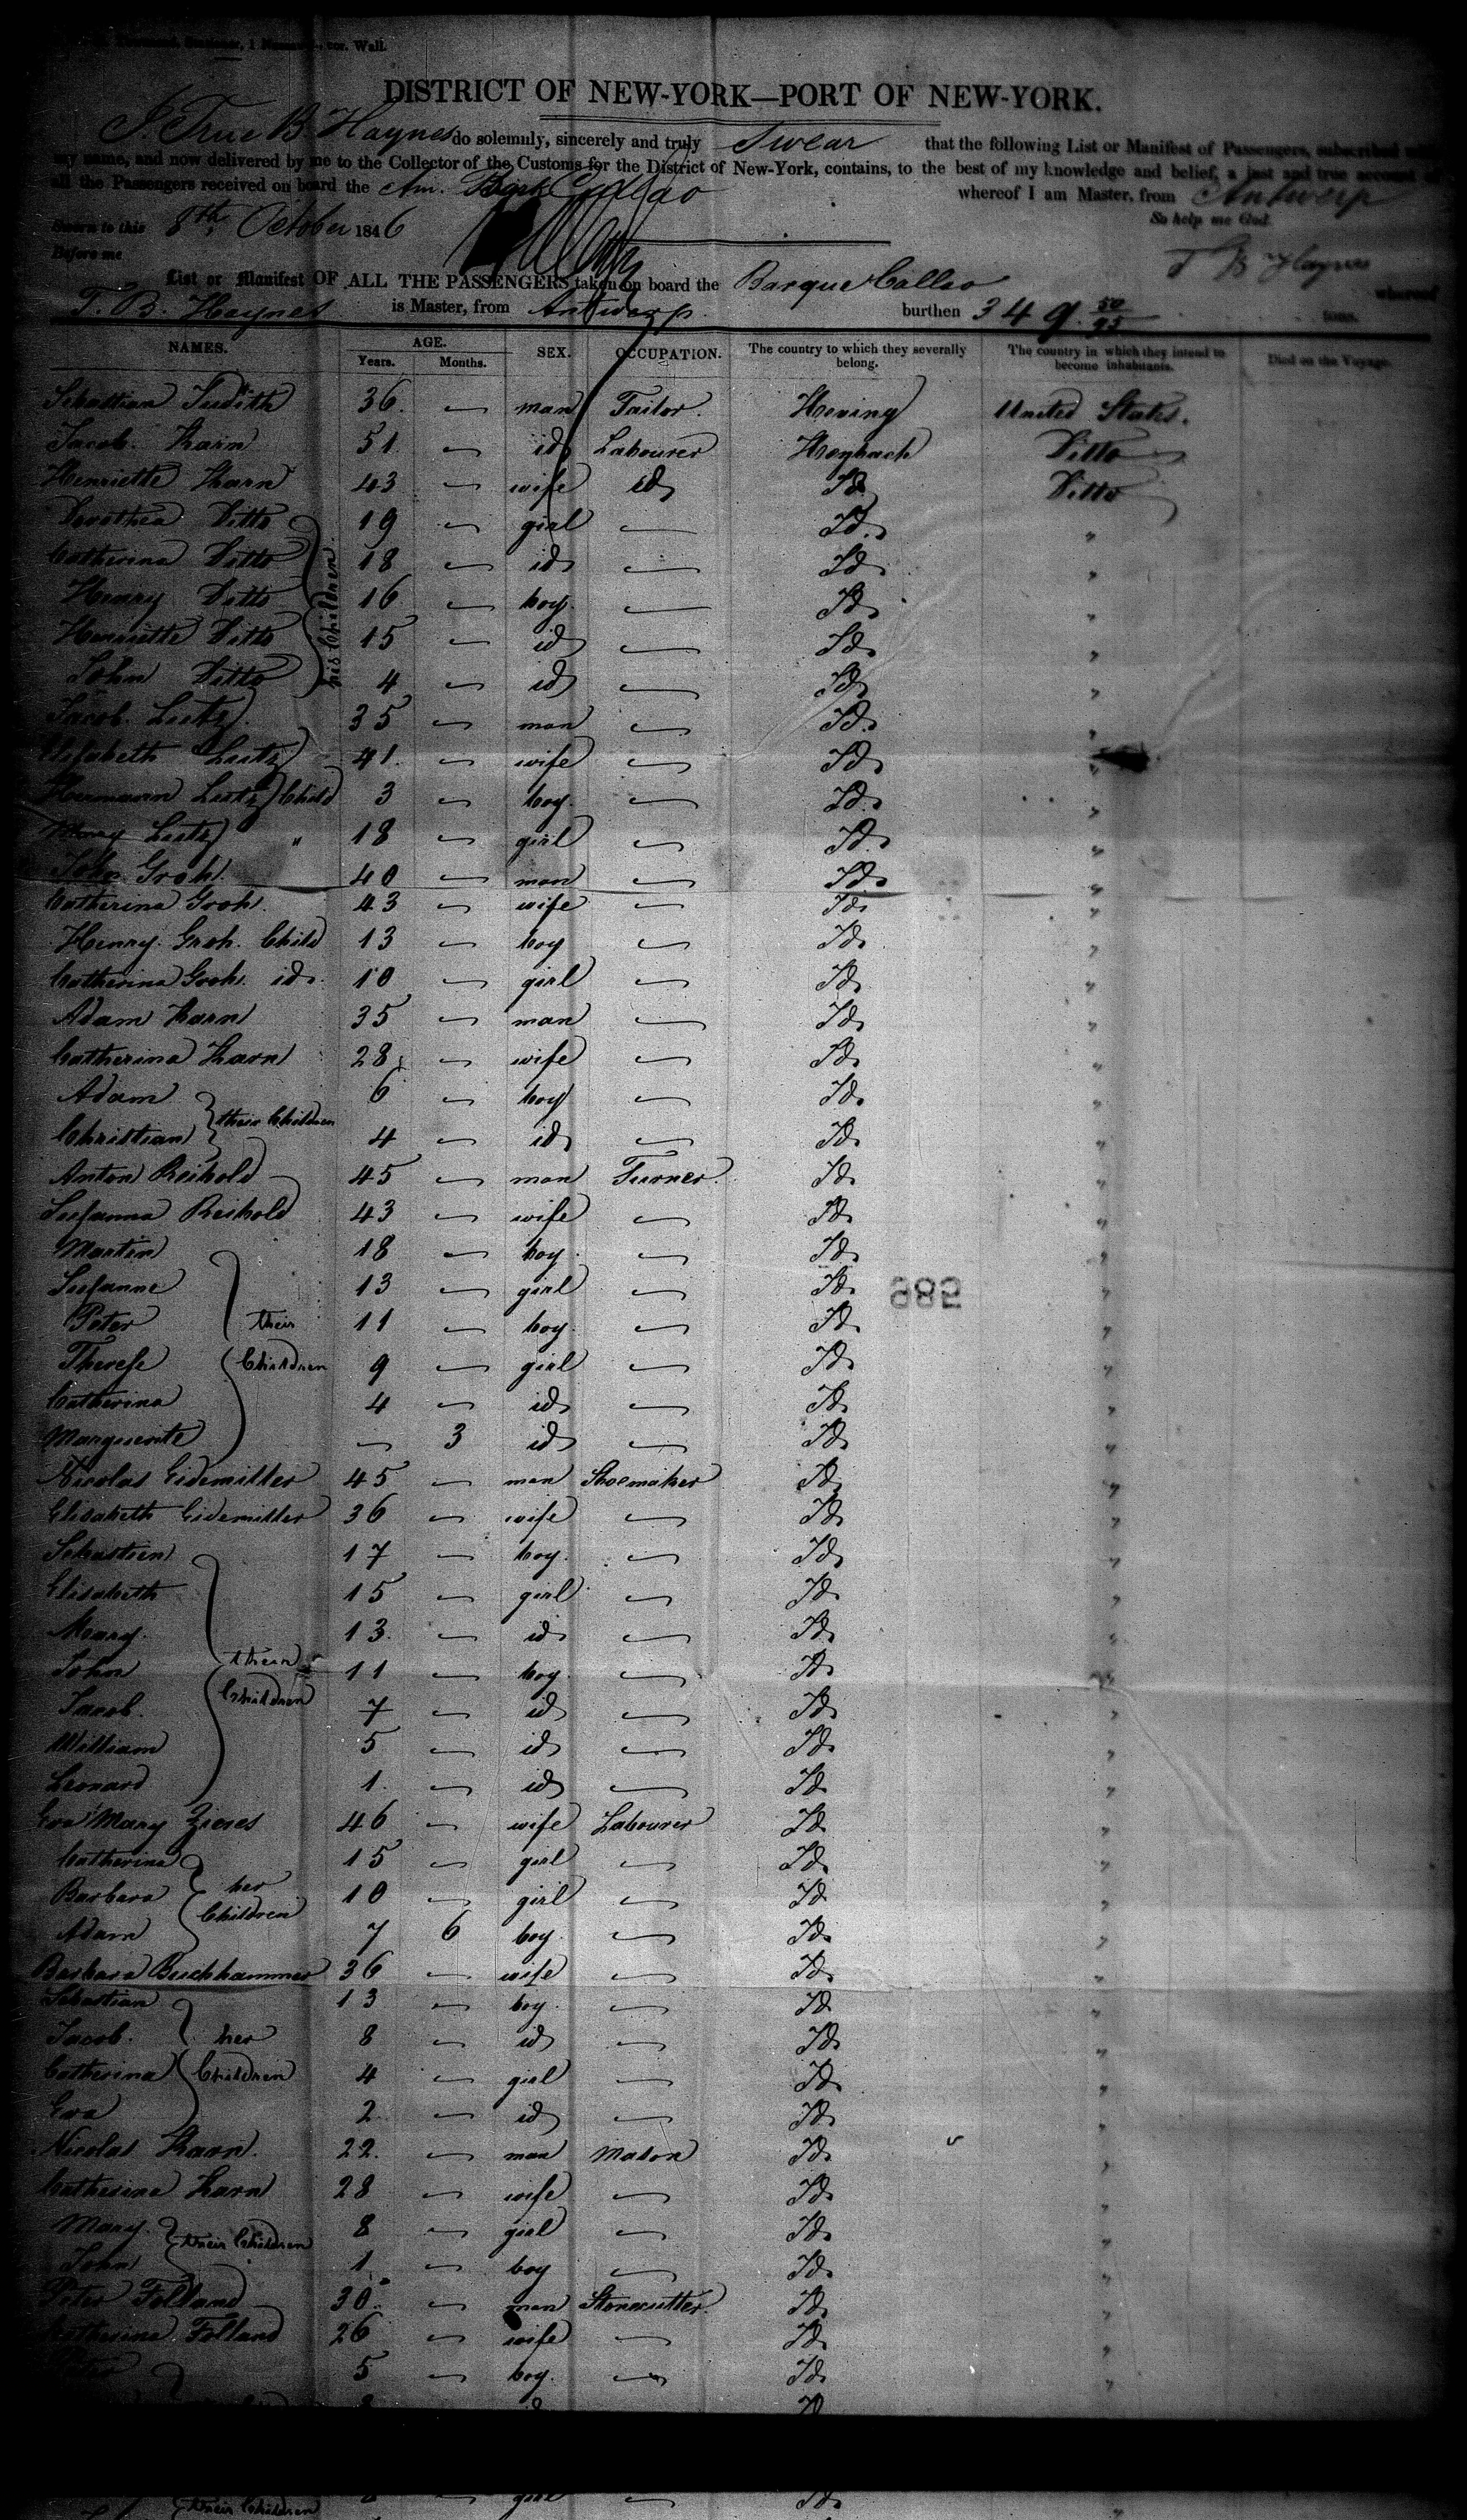 cor. Wall.
DISTRICT OF NEW-YORK—PORT OF NEW-YORK.
I, True B. Haynes do solemnly, sincerely and truly Swear that the following List or Manifest of Passengers, subscribed with
my name, and now delivered by me to the Collector of the Customs for the District of New-York, contains, to the best of my knowledge and belief, a just and true account of
all the Passengers received on board the Am. Bark Callao whereof I am Master, from Antwerp
Sworn to this 8th October 1846 So help me God.
Before me T B Haynes
List or Manifest OF ALL THE PASSENGERS taken on board the Barque Callao whereof
T. B. Haynes is Master, from Antwerp burthen 349 50/95 tons.
NAMES. AGE. Years. Months. SEX. OCCUPATION. The country to which they severally belong. The country in which they intend to become inhabitants. Died on the Voyage.
Sebastian Judith 36 — man Tailor. United States.
Jacob Karn 51 — id Labourer Ditto
Henriette Karn 43 — wife id Id Ditto
Dorothea Ditto 19 — girl — Id. "
Catherina Ditto 18 — id — Id "
Henry Ditto his Children 16 — boy — Id "
Henriette Ditto 15 — id — Id "
John Ditto 4 — id — Id "
Jacob Lutz 35 — man — Id. "
Elisabeth Lutz 41 — wife — Id "
Hermann Lutz Child 3 — boy — Id. "
Lutz " 18 — girl — Id. "
John Groh. 40 — man — Id. "
Catherina Groh. 43 — wife — Id. "
Henry Groh. Child 13 — boy — Id. "
Catherina Groh. id. 10 — girl — Id. "
Adam Karn 35 — man — Id. "
Catherina Karn 28 — wife — Id. "
Adam 6 — boy — Id. "
Christian their Children 4 — id — Id. "
Anton Reihold 45 — man Turner. Id. "
Susanna Reihold 43 — wife — Id. "
Martin 18 — boy — Id. "
Susanne 13 — girl — Id. 985 "
Peter their 11 — boy — Id. "
Therese Children 9 — girl — Id. "
Catherina 4 — id — Id. "
Marguerite — 3 id — Id. "
Nicolas Eidemiller 45 — man Shoemaker Id. "
Elisabeth Eidemiller 36 — wife — Id. "
Sebastien 17 — boy — Id. "
Elisabeth 15 — girl — Id. "
Mary. 13 — id — Id. "
John their 11 — boy — Id. "
Jacob. Children 7 — id — Id. "
William 5 — id — Id. "
Leonard 1 — id — Id. "
Eva Mary Zieres 46 — wife Labourer Id. "
Catherina 15 — girl — Id. "
Barbara her 10 — girl — Id. "
Adam Children 7 6 boy — Id. "
Barbara Buckhammer 36 — wife — Id. "
Sebastian 13 — boy — Id. "
Jacob. her 8 — id — Id. "
Catherina Children 4 — girl — Id. "
Eva 2 — id — Id. "
Nicolas Karn. 22 — man Mason Id. "
Catherina Karn 28 — wife — Id. "
Mary. their Children 8 — girl — Id. "
John 1 — boy — Id. "
Peter Folland 30 — man Stonecutter. Id. "
Catherina Folland 26 — wife — Id. "
5 — boy — Id. "
id Id
their Children girl — Id. "